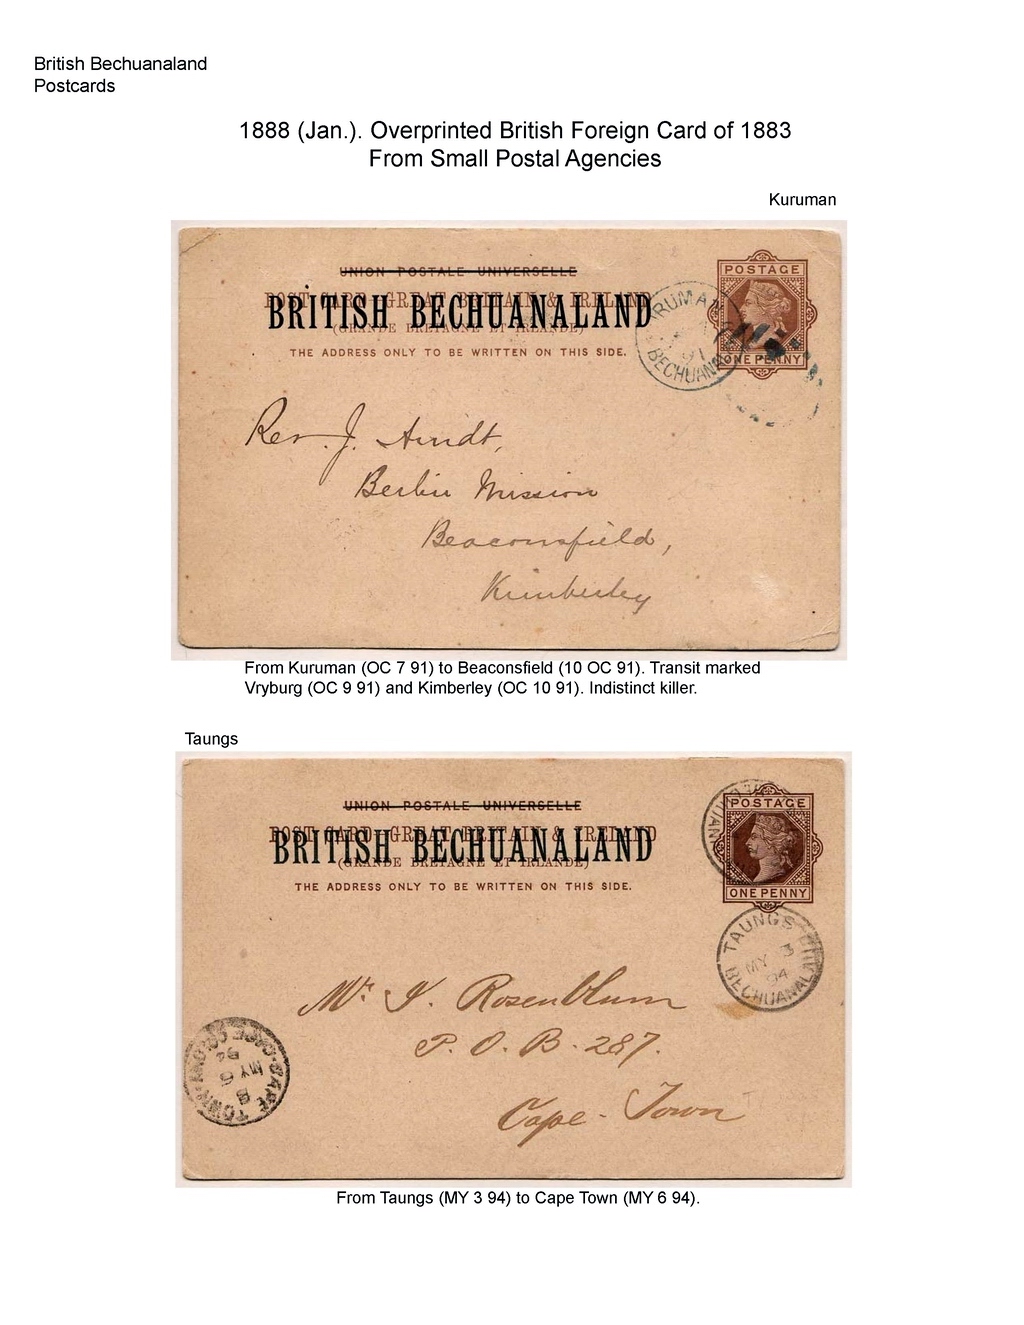 British Bechuanaland
Postcards
1888 (Jan.). Overprinted British Foreign Card of 1883
From Small Postal Agencies
Kuruman
UNION POSTALE UNIVERSELLE
POST CARD-GREAT BRITAIN & IRELAND
BRITISH BECHUANALAND
(GRANDE BRETAGNE ET IRLANDE)
THE ADDRESS ONLY TO BE WRITTEN ON THIS SIDE.
POSTAGE
ONE PENNY
91
Rev. J. Arndt,
Berlin Mission
Beaconsfield,
Kimberley
From Kuruman (OC 7 91) to Beaconsfield (10 OC 91). Transit marked
Vryburg (OC 9 91) and Kimberley (OC 10 91). Indistinct killer.
Taungs
UNION POSTALE UNIVERSELLE
POST CARD-GREAT BRITAIN & IRELAND
BRITISH BECHUANALAND
(GRANDE BRETAGNE ET IRLANDE)
THE ADDRESS ONLY TO BE WRITTEN ON THIS SIDE.
POSTAGE
ONE PENNY
TAUNGS
MY 3
94
Mr. I. Rosenblum
P. O. B. 287.
Cape-Town
CAPE TOWN. CAPE COLONY
8
MY 6
94
From Taungs (MY 3 94) to Cape Town (MY 6 94).